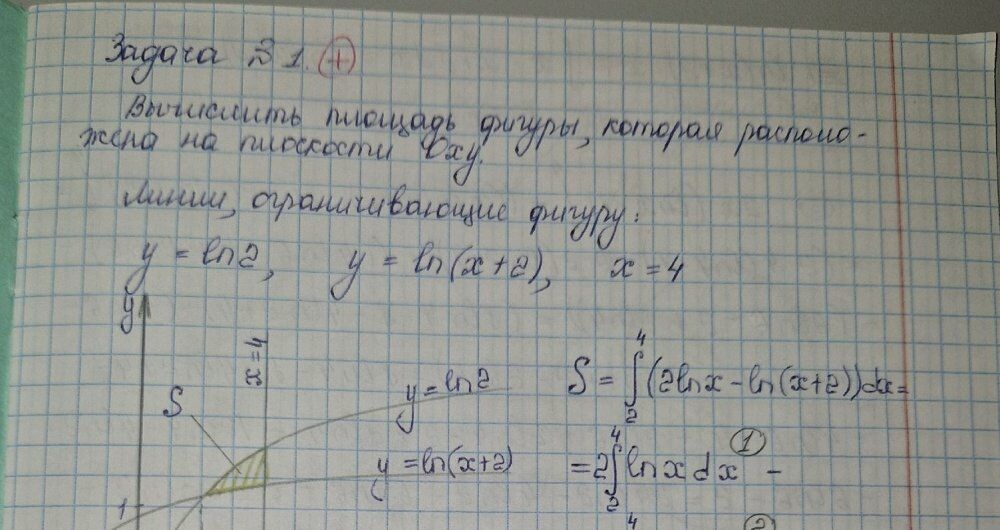 Задача № 1. +
Вычислить площадь фигуры, которая располо-
жена на плоскости Oxy.
Линии, ограничивающие фигуру:
y = ln2, y = ln(x+2), x = 4
y
x=4
S
y=ln2
y=ln(x+2)
1
S = ∫₂⁴ (2lnx - ln(x+2))dx =
= 2∫₂⁴ lnx dx ① -
4 ②